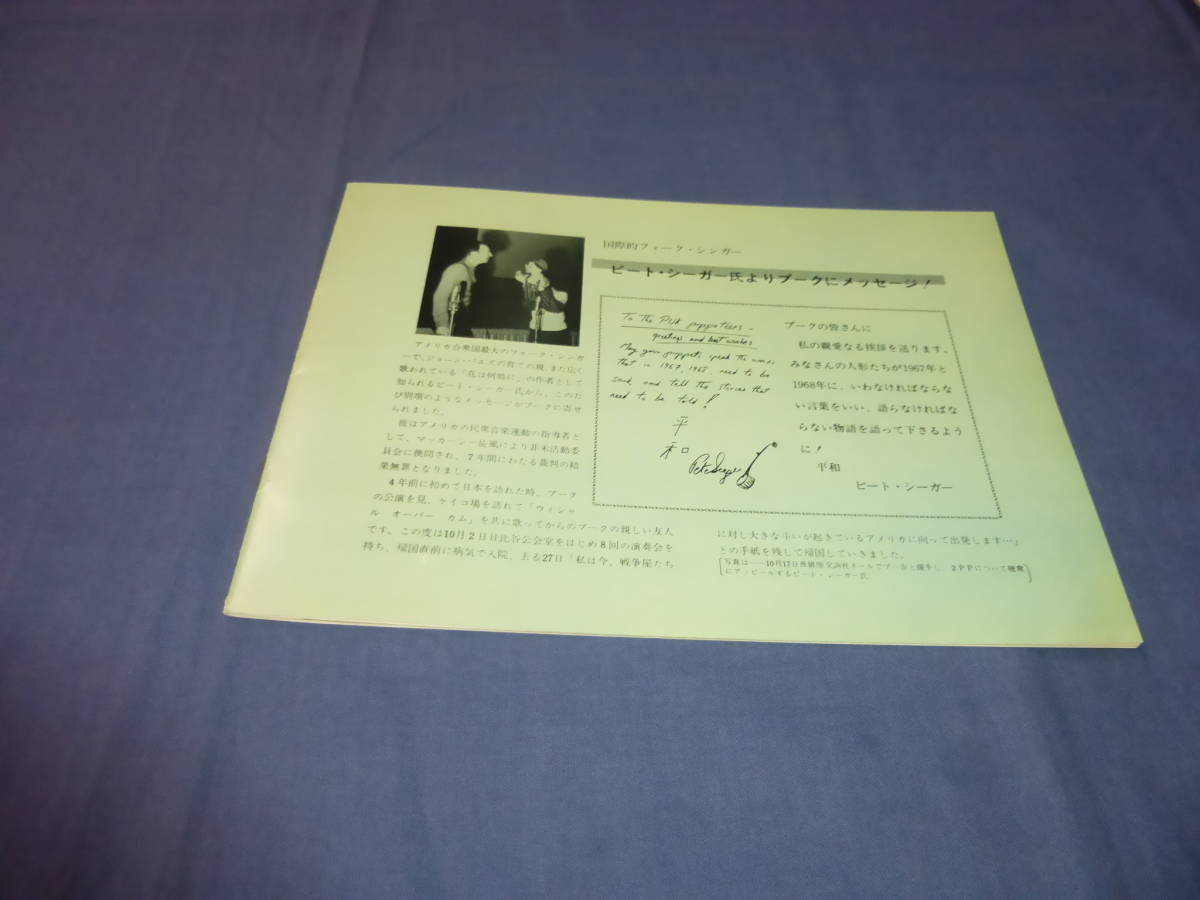 国際的フォーク・シンガー
ピート・シーガー氏よりプークにメッセージ!
To the PUK puppeteers -
greetings and best wishes
May your puppets speak the words
that in 1967, 1968, need to be
said, and tell the stories that
need to be told!
平
和
Pete Seeger
プークの皆さんに
私の親愛なる挨拶を送ります。
みなさんの人形たちが1967年と
1968年に、いわなければならな
い言葉をいい、語らなければな
らない物語を語って下さるよう
に!
平和
ピート・シーガー
アメリカ合衆国最大のフォーク・シンガ
ーで、ジョーン・バエズの育ての親、また広く
歌われている「花は何処に」の作者として
知られるピート・シーガー氏から、このた
び別項のようなメッセージがプークに寄せ
られました。
彼はアメリカの民衆音楽運動の指導者と
して、マッカーシー旋風により非米活動委
員会に喚問され、7年間にわたる裁判の結
果無罪となりました。
4年前に初めて日本を訪れた時、プーク
の公演を見、ケイコ場を訪れて「ウィシャ
ル オーバー カム」を共に歌ってからのプークの親しい友人
です。この度は10月2日日比谷公会堂をはじめ8回の演奏会を
持ち、帰国直前に病気で入院、去る27日「私は今、戦争屋たち
に対し大きな斗いが起きているアメリカに向って出発します…」
との手紙を残して帰国していきました。
写真は――10月17日 ホールでプークと握手し、2PPについて聴衆
にアッピールするピート・シーガー氏